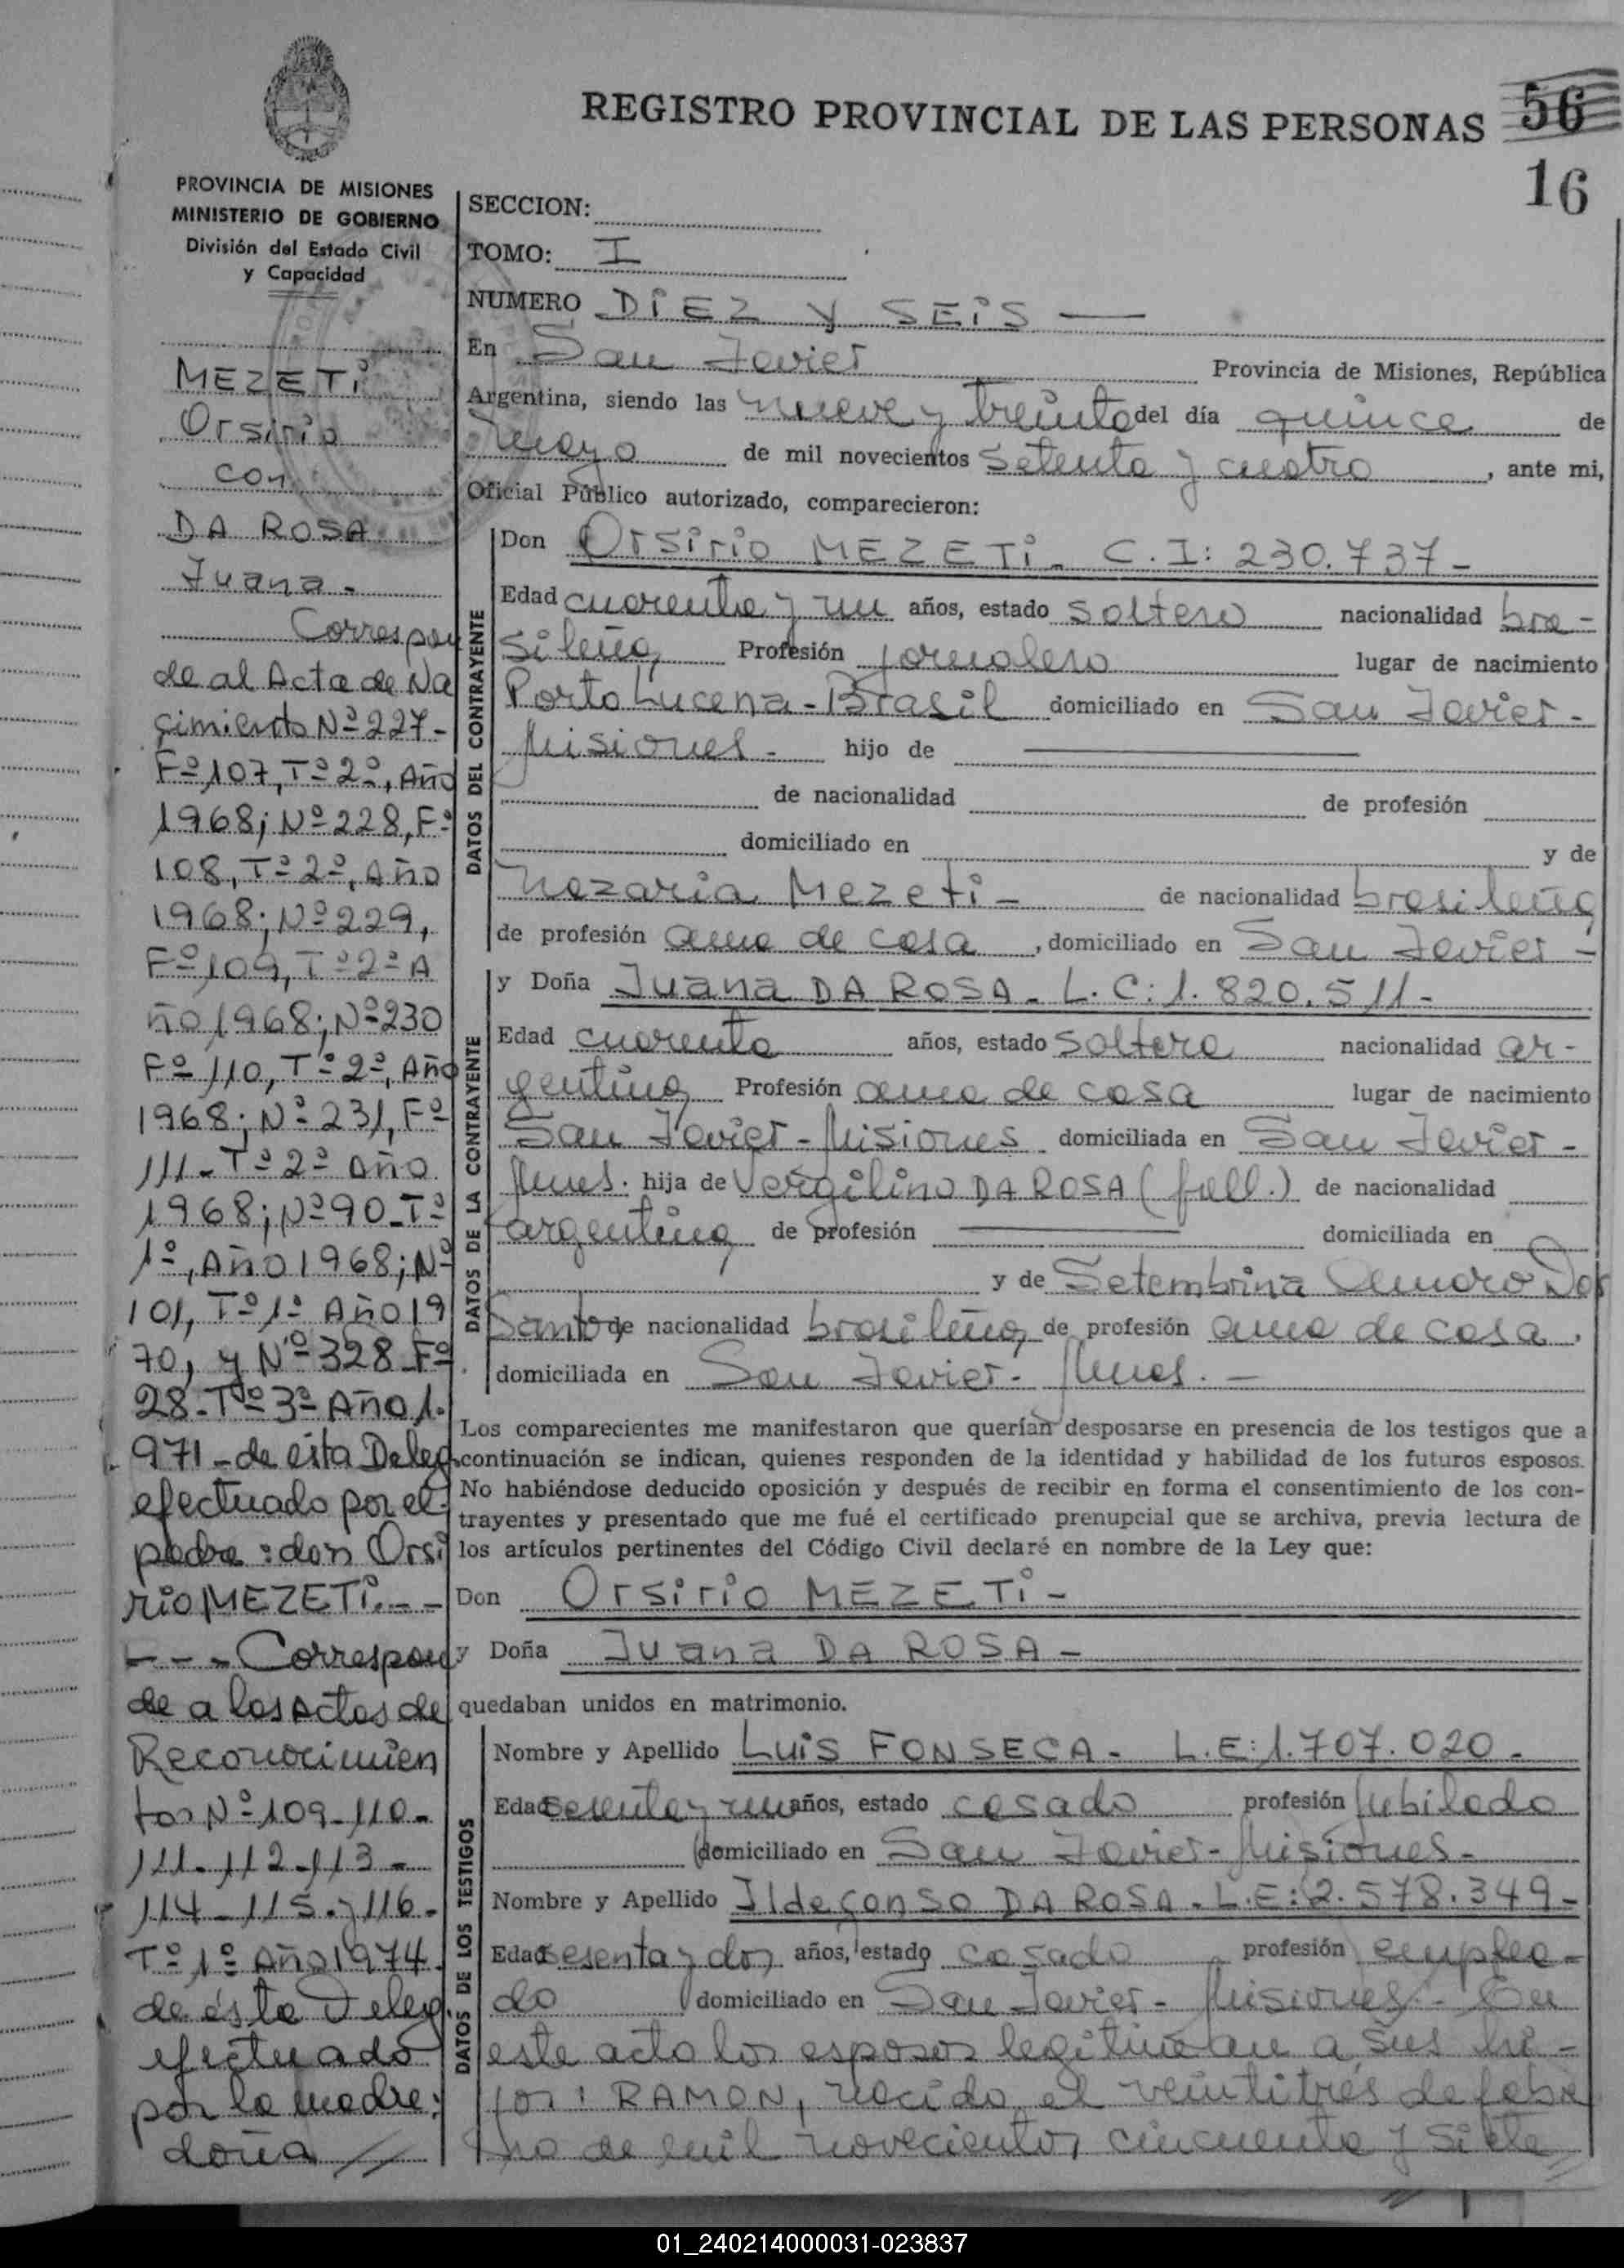 REGISTRO PROVINCIAL DE LAS PERSONAS 56
16
PROVINCIA DE MISIONES
MINISTERIO DE GOBIERNO
División del Estado Civil
y Capacidad
MEZETI
Orsirio
con
DA ROSA
Juana -
Correspon
de al Acta de Na
cimiento Nº 227-
Fº 107, Tº 2º, Año
1968; Nº 228, Fº
108, Tº 2º, Año
1968; Nº 229,
Fº 109, Tº 2º A
ño 1968; Nº 230
Fº 110, Tº 2º, Año
1968; Nº 231, Fº
111 - Tº 2º Año
1968; Nº 90 - Tº
1º, Año 1968; Nº
101, Tº 1º Año 19
70, y Nº 328 Fº
28 - Tº 3º Año 1.
971 - de esta Deleg.
efectuado por el
padre: don Orsi
rio MEZETI. - -
- - - Correspon
de a las Actas de
Reconocimien
tos Nº 109 - 110 -
111 - 112 - 113 -
114 - 115 - y 116 -
Tº 1º Año 1974.
de ésta Deleg.
efectuado
por la madre:
doña //
SECCION:
TOMO: I
NUMERO DIEZ Y SEIS —
En San Javier Provincia de Misiones, República
Argentina, siendo las nueve y treinta del día quince de
mayo de mil novecientos setenta y cuatro, ante mi,
Oficial Público autorizado, comparecieron:
DATOS DEL CONTRAYENTE
Don Orsirio MEZETI - C.I: 230.737 -
Edad cuarenta y un años, estado soltero nacionalidad bra-
sileña Profesión jornalero lugar de nacimiento
Porto Lucena - Brasil domiciliado en San Javier -
Misiones - hijo de —
de nacionalidad de profesión
domiciliado en y de
Nazaria Mezeti - de nacionalidad brasileña
de profesión ama de casa, domiciliado en San Javier -
DATOS DE LA CONTRAYENTE
y Doña Juana DA ROSA - L.C: 1.820.511 -
Edad cuarenta años, estado soltera nacionalidad ar-
gentina Profesión ama de casa lugar de nacimiento
San Javier - Misiones domiciliada en San Javier -
Mnes. hija de Vergilino DA ROSA (fall.) de nacionalidad
argentina de profesión — domiciliada en
y de Setembrina Amaro Dos
Santos de nacionalidad brasileña de profesión ama de casa,
domiciliada en San Javier - Mnes. -
Los comparecientes me manifestaron que querían desposarse en presencia de los testigos que a
continuación se indican, quienes responden de la identidad y habilidad de los futuros esposos.
No habiéndose deducido oposición y después de recibir en forma el consentimiento de los con-
trayentes y presentado que me fué el certificado prenupcial que se archiva, previa lectura de
los artículos pertinentes del Código Civil declaré en nombre de la Ley que:
Don Orsirio MEZETI -
y Doña Juana DA ROSA -
quedaban unidos en matrimonio.
DATOS DE LOS TESTIGOS
Nombre y Apellido Luis FONSECA - L.E: 1.707.020 -
Edad sesenta y un años, estado casado profesión jubilado
domiciliado en San Javier - Misiones -
Nombre y Apellido Ildefonso DA ROSA - L.E: 2.578.349 -
Edad sesenta y dos años, estado casado profesión emplea-
do domiciliado en San Javier - Misiones - En
este acto los esposos legitiman a sus hi-
jos: RAMON, nacido el veintitrés de febre
ro de mil novecientos cincuenta y siete
01_240214000031-023837